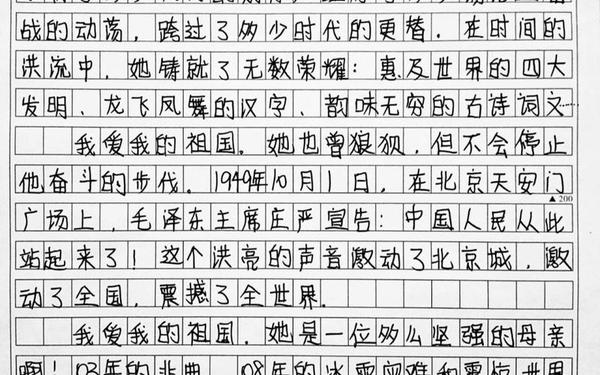 战的动荡，跨过了多少时代的更替．在时间的
洪流中，她铸就了无数荣耀：惠及世界的四大
发明、龙飞凤舞的汉字、韵味无穷的古诗词文……
我爱我的祖国．她也曾狼狈，但不会停止
他奋斗的步代．1949年10月1日，在北京天安门
▲200
广场上，毛泽东主席庄严宣告：中国人民从此
站起来了！这个洪亮的声音激动了北京城，激
动了全国，震撼了全世界．
我爱我的祖国．她是一位多么坚强的母亲
啊！03年的非典、08年的冰雪灾难和震惊世界